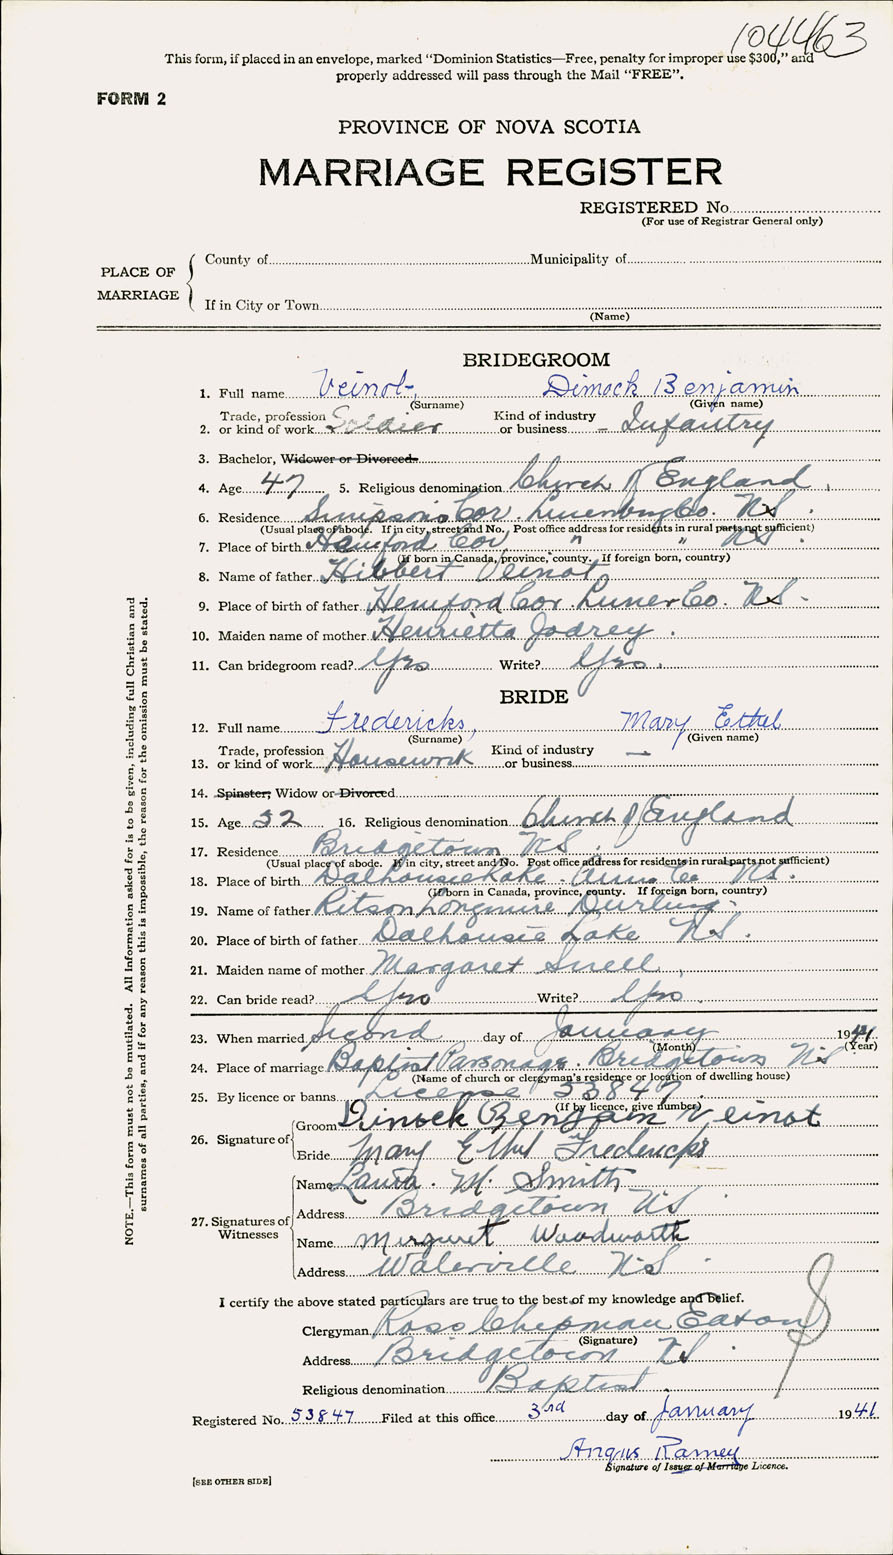 104463
This form, if placed in an envelope, marked “Dominion Statistics—Free, penalty for improper use $300,” and
properly addressed will pass through the Mail “FREE”.
FORM 2
PROVINCE OF NOVA SCOTIA
MARRIAGE REGISTER
REGISTERED No.
(For use of Registrar General only)
PLACE OF MARRIAGE
County of Municipality of
If in City or Town
(Name)
BRIDEGROOM
1. Full name Veinot, Dimock Benjamin
(Surname) (Given name)
2. Trade, profession or kind of work Soldier Kind of industry or business - Infantry
3. Bachelor, Widower or Divorced.
4. Age 47 5. Religious denomination Church of England
6. Residence Simpsons Cor. Lunenburg Co. NS
(Usual place of abode. If in city, street and No. Post office address for residents in rural parts not sufficient)
7. Place of birth Hemford Cor " " NS.
(If born in Canada, province, county. If foreign born, country)
8. Name of father Hibbert Veinot
9. Place of birth of father Hemford Cor Lunen Co. NS.
10. Maiden name of mother Henrietta Jodrey.
11. Can bridegroom read? Yes Write? Yes.
BRIDE
12. Full name Fredericks, Mary Ethel
(Surname) (Given name)
13. Trade, profession or kind of work Housework Kind of industry or business —
14. Spinster, Widow or Divorced
15. Age 32 16. Religious denomination Church of England
17. Residence Bridgetown NS.
(Usual place of abode. If in city, street and No. Post office address for residents in rural parts not sufficient)
18. Place of birth Dalhousie Lake. Anna Co NS.
(If born in Canada, province, county. If foreign born, country)
19. Name of father Ritson Longmire Durling.
20. Place of birth of father Dalhousie Lake NS.
21. Maiden name of mother Margaret Snell
22. Can bride read? Yes Write? Yes.
23. When married Second day of January 1941
(Month) (Year)
24. Place of marriage Baptist Parsonage. Bridgetown NS
(Name of church or clergyman's residence or location of dwelling house)
25. By licence or banns License 53847
(If by licence, give number)
26. Signature of Groom Dimock Benjain Veinot
Bride Mary Ethel Fredericks
27. Signatures of Witnesses Name Laura. M. Smith
Address Bridgetown NS
Name Margaret Woodworth
Address Waterville NS
I certify the above stated particulars are true to the best of my knowledge and belief.
Clergyman Ross Chipman Eaton
(Signature)
Address Bridgetown NS
Religious denomination Baptist.
Registered No. 53847 Filed at this office 3rd day of January 1941
Angus Ramey
Signature of Issuer of Marriage Licence.
[SEE OTHER SIDE]
NOTE.—This form must not be mutilated. All information asked for is to be given, including full Christian and
surnames of all parties, and if for any reason this is impossible, the reason for the omission must be stated.